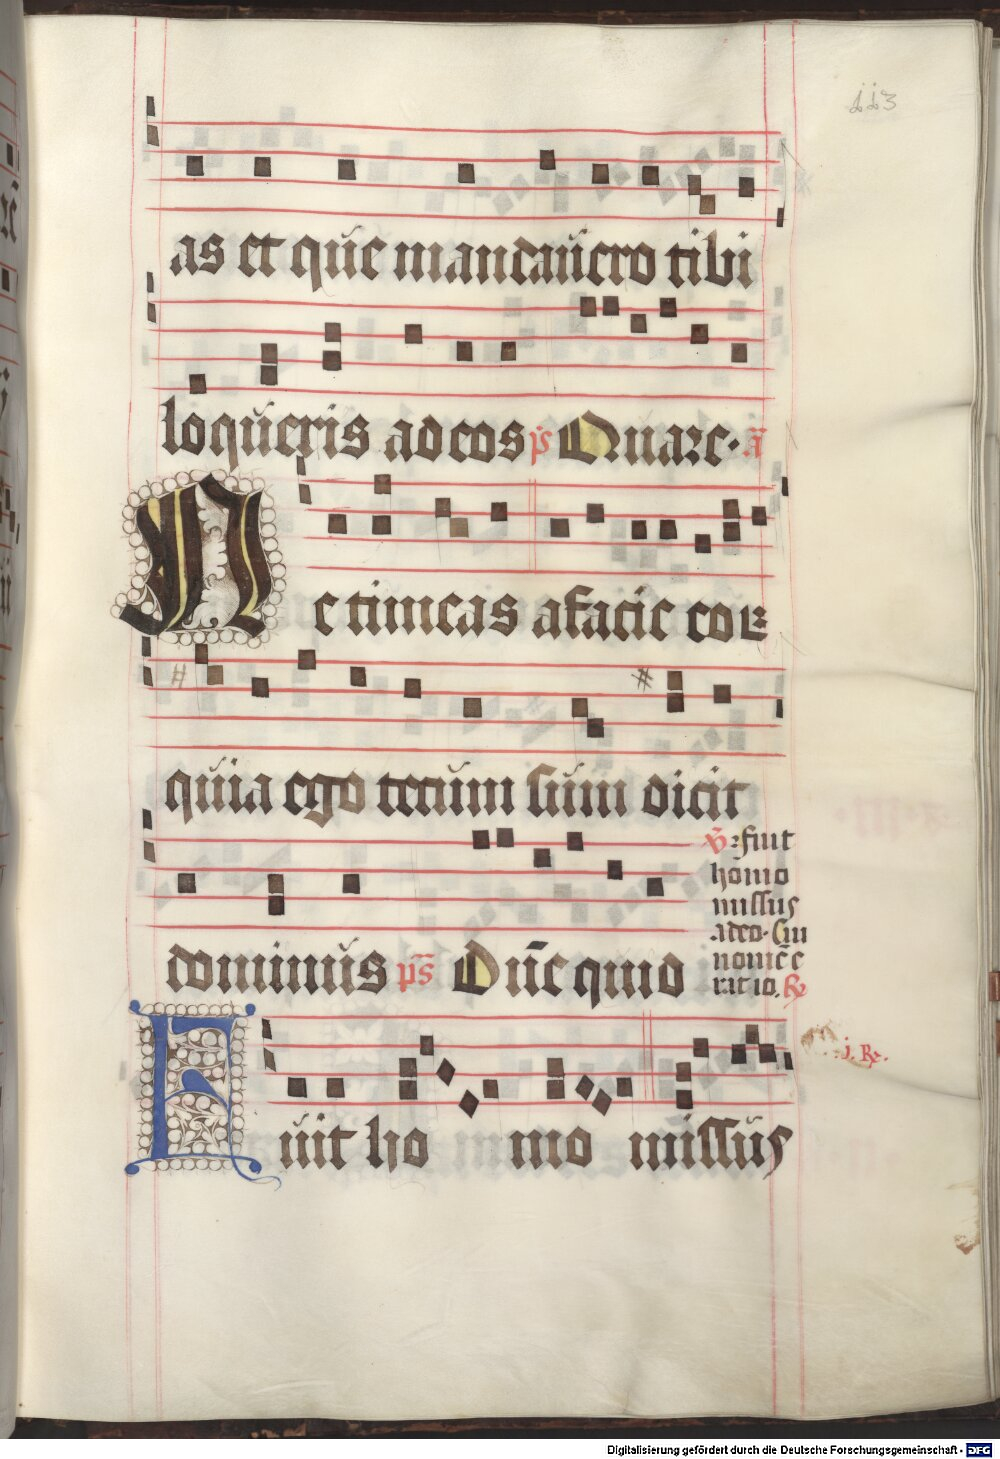 113
as et que mandavero tibi
loqueris ad eos ps Quare. a
Ne timeas a facie eor
quia ego tecum sum dicit
dominus ps Dñe quid
V. fuit
homo
missus
a deo. Cui
nomē e
rat io. R
Fuit ho mo missus
j. R.
Digitalisierung gefördert durch die Deutsche Forschungsgemeinschaft - DFG